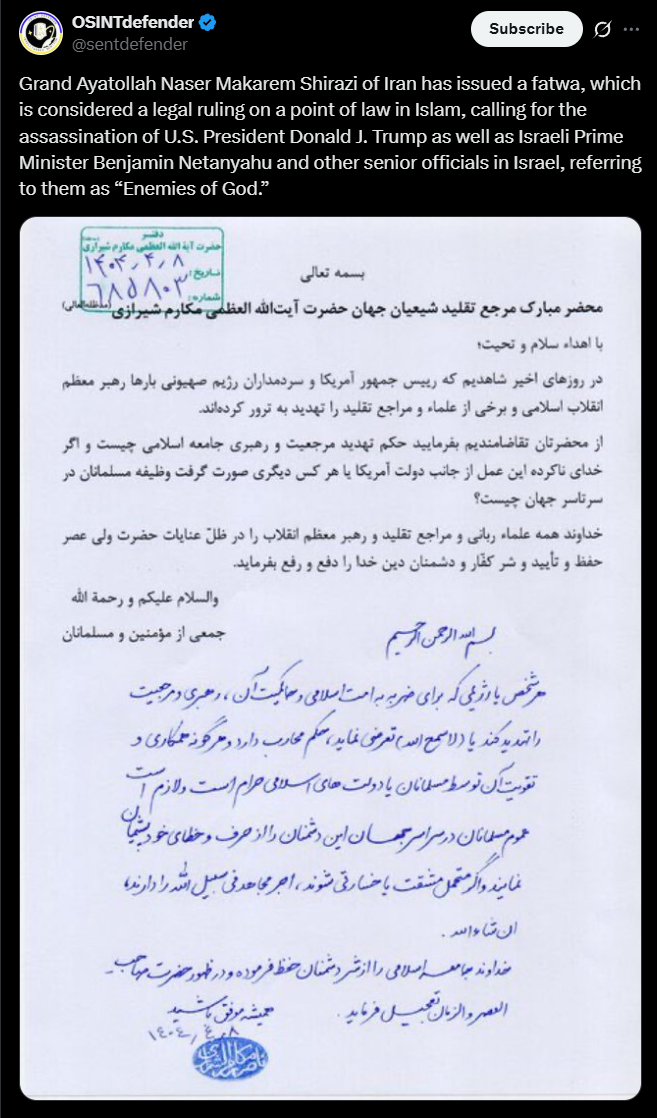 OSINTdefender
@sentdefender
Subscribe
Grand Ayatollah Naser Makarem Shirazi of Iran has issued a fatwa, which
is considered a legal ruling on a point of law in Islam, calling for the
assassination of U.S. President Donald J. Trump as well as Israeli Prime
Minister Benjamin Netanyahu and other senior officials in Israel, referring
to them as “Enemies of God.”
دفتر
حضرت آیة الله العظمی مکارم شیرازی
تاریخ: ۱۴۰۴/۴/۸
شماره: ۶۸۵۸۰۳
بسمه تعالی
محضر مبارک مرجع تقلید شیعیان جهان حضرت آیت‌الله العظمی مکارم شیرازی (مدظله‌العالی)
با اهداء سلام و تحیت؛
در روزهای اخیر شاهدیم که رییس جمهور آمریکا و سردمداران رژیم صهیونی بارها رهبر معظم
انقلاب اسلامی و برخی از علماء و مراجع تقلید را تهدید به ترور کرده‌اند.
از محضرتان تقاضامندیم بفرمایید حکم تهدید مرجعیت و رهبری جامعه اسلامی چیست و اگر
خدای ناکرده این عمل از جانب دولت آمریکا یا هر کس دیگری صورت گرفت وظیفه مسلمانان در
سرتاسر جهان چیست؟
خداوند همه علماء ربانی و مراجع تقلید و رهبر معظم انقلاب را در ظلّ عنایات حضرت ولی عصر
حفظ و تأیید و شر کفّار و دشمنان دین خدا را دفع و رفع بفرماید.
والسلام علیکم و رحمة الله
جمعی از مؤمنین و مسلمانان
بسم الله الرحمن الرحیم
هر شخص یا رژیمی که برای ضربه به امت اسلامی و حاکمیت آن، رهبری و مرجعیت
را تهدید کند یا (لاسمح الله) تعرضی نماید، حکم محارب دارد و هرگونه همکاری و
تقویت آن توسط مسلمانان یا دولت های اسلامی حرام است و لازم است
عموم مسلمانان در سراسر جهان این دشمنان را از حرف و خطای خود پشیمان
نمایند و اگر متحمل مشقت یا خسارتی شوند، اجر مجاهد فی سبیل الله را دارند،
ان شاءالله.
خداوند جامعه اسلامی را از شر دشمنان حفظ فرموده و در ظهور حضرت صاحب
العصر والزمان تعجیل فرماید.
همیشه موفق باشید
۱۴۰۴/۴/۸